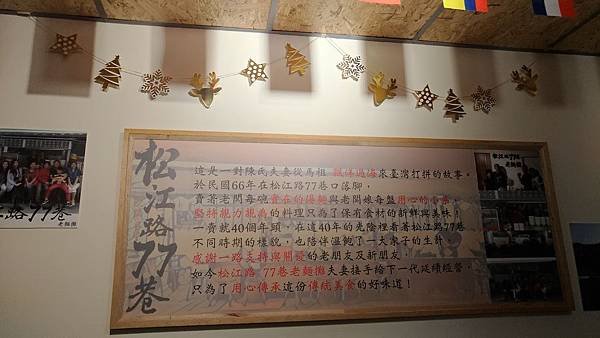 松江路77巷
這是一對陳氏夫妻從馬祖 飄佛過海來臺灣打拼的故事。
於民國66年在松江路77巷口落腳，
賣著老闆每碗實在的傻麵與老闆娘每盤用心的小菜，
堅持親力親為的料理只為了保有食材的新鮮與美味！
一賣就40個年頭，在這40年的光陰裡看著松江路77巷
不同時期的樣貌，也陪伴溫飽了一大家子的生計，
感謝一路支持與關愛的老朋友及新朋友，
如今松江路 77巷老麵攤夫妻接手給下一代延續經營，
只為了用心傳承這份傳統美食的好味道！
路77巷
老麵攤
松江路77巷
老麵攤